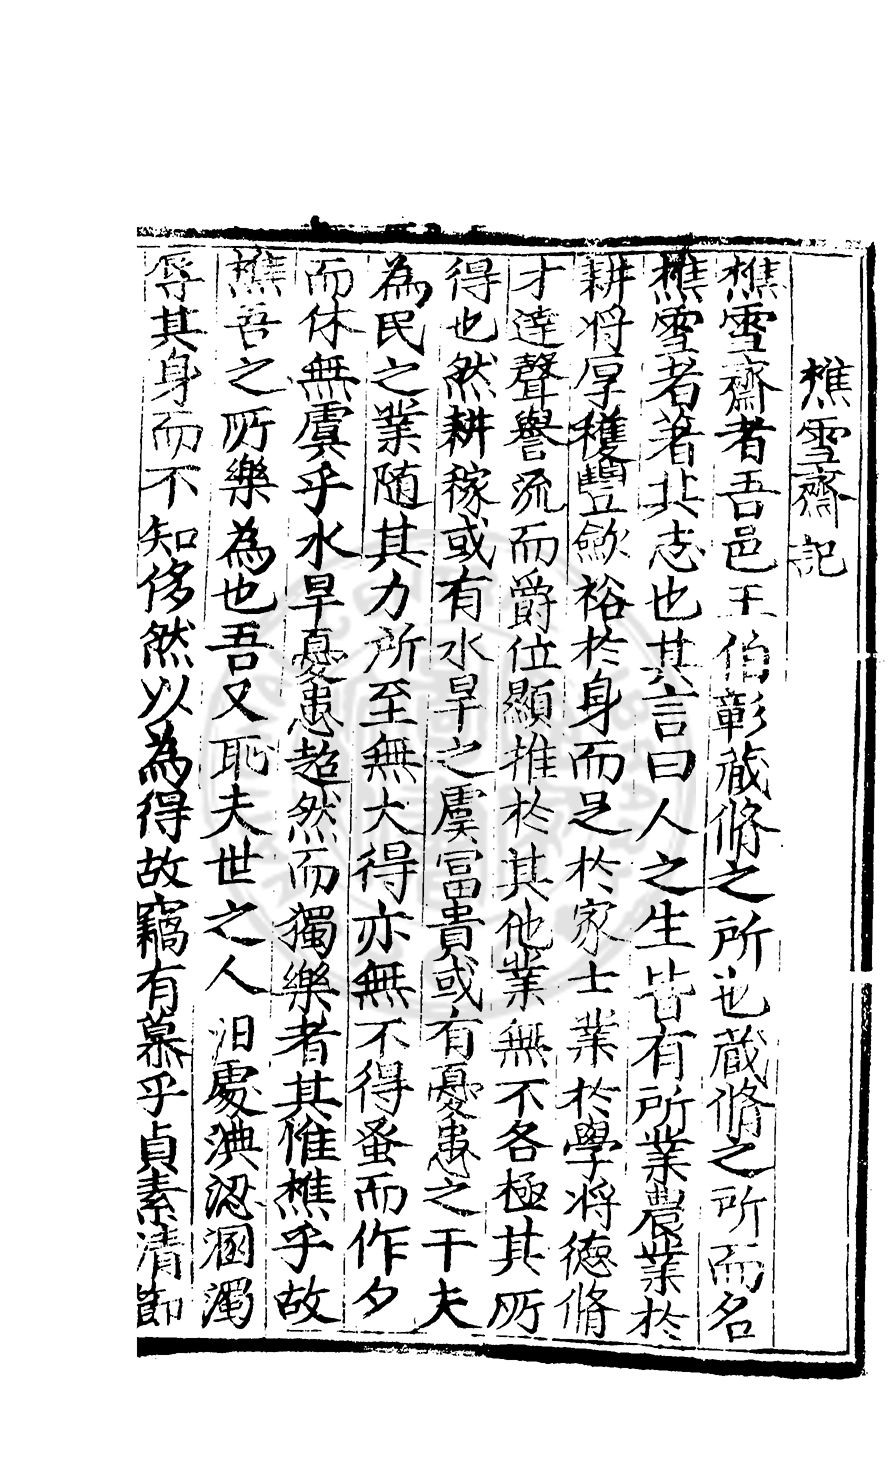 樵雪齋記
樵雪齋者吾邑王伯彰藏脩之所也蔵脩之所而名
樵雪者著其志也其言曰人之生皆有所業農業於
耕将厚穫豐歛裕於身而足於家士業於學将德脩
才達聲譽流而爵位顯推於其他業無不各極其所
得也然耕稼或有水旱之虞冨貴或有憂患之干夫
為民之業随其力所至無大得亦無不得蚤而作夕
而休無虞乎水旱憂患超然而獨樂者其惟樵乎故
樵吾之所樂為也吾又恥夫世之人汩處淟涊溷濁
辱其身而不知侈然以為得故竊有慕乎貞素清節